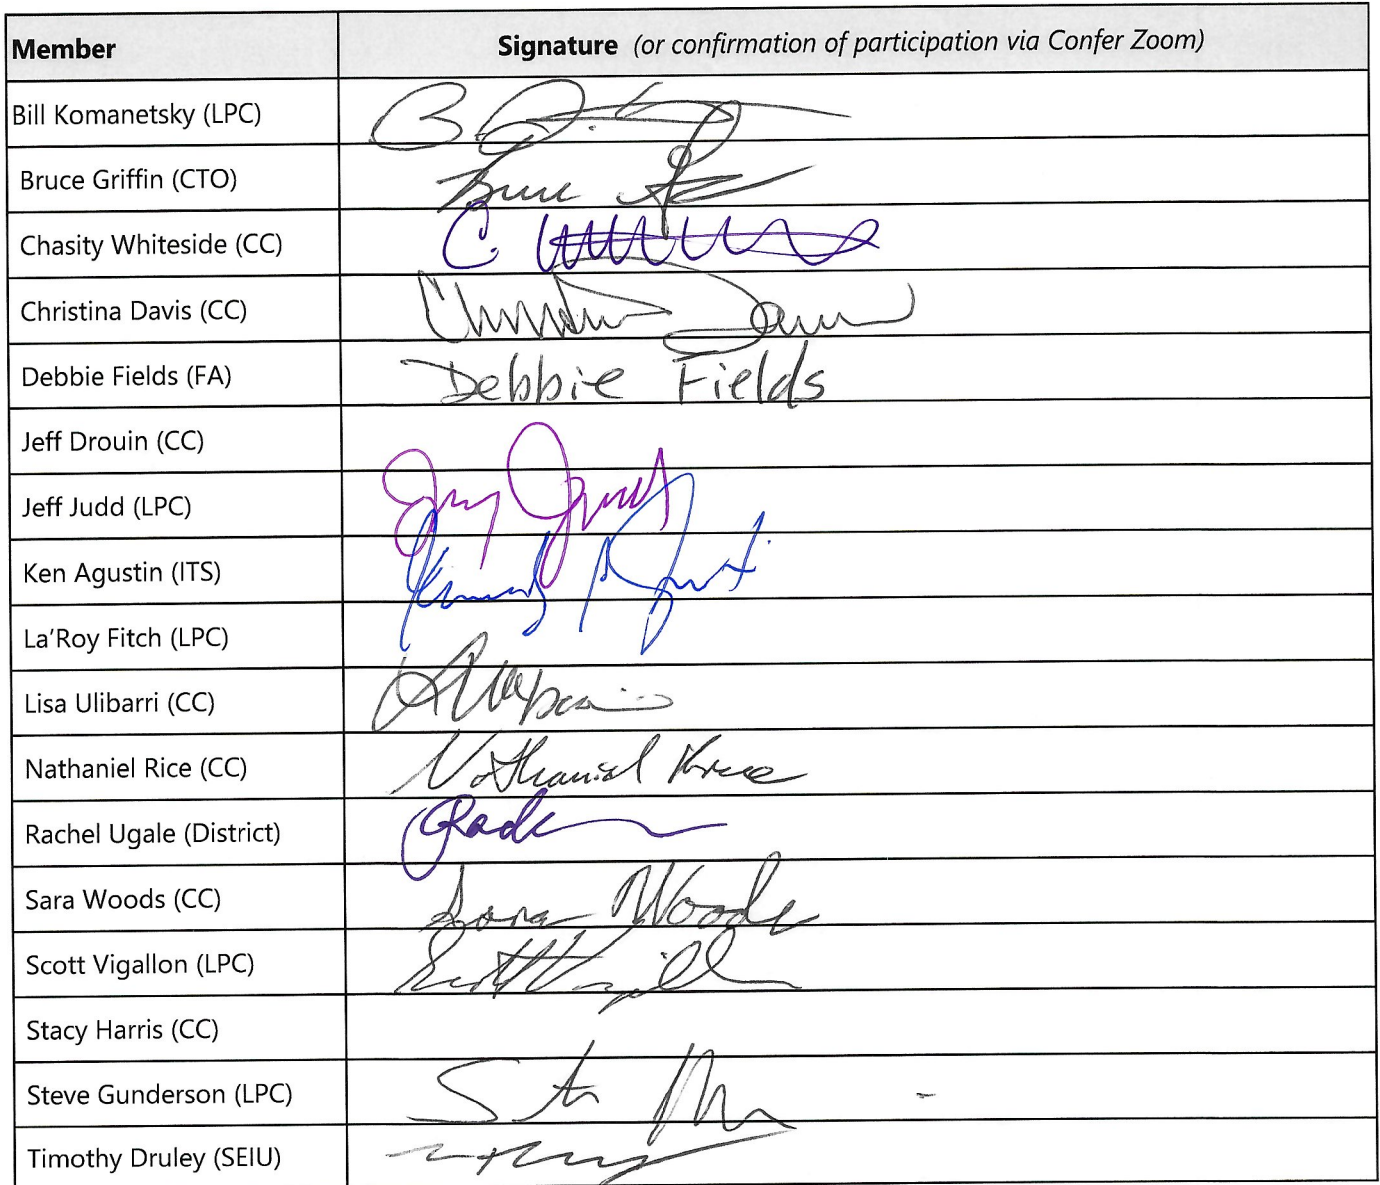 Member Signature (or confirmation of participation via Confer Zoom)
Bill Komanetsky (LPC)
Bruce Griffin (CTO) Bruce
Chasity Whiteside (CC) C.
Christina Davis (CC)
Debbie Fields (FA) Debbie Fields
Jeff Drouin (CC)
Jeff Judd (LPC)
Ken Agustin (ITS)
La'Roy Fitch (LPC)
Lisa Ulibarri (CC)
Nathaniel Rice (CC) Nathaniel Rice
Rachel Ugale (District)
Sara Woods (CC) Sara Woods
Scott Vigallon (LPC) Scott Vigallon
Stacy Harris (CC)
Steve Gunderson (LPC)
Timothy Druley (SEIU)